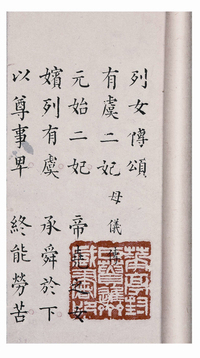 列女傳頌
有虞二妃 母儀傳
元始二妃 帝堯之女
嬪列有虞 承舜於下
以尊事卑 終能勞苦